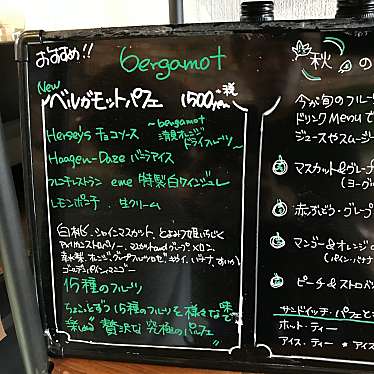 おすすめ!!
bergamot
New
ベルガモットパフェ 1500yen +税
~bergamot
Herseys チョコソース
漬オレンジ
ドライフルーツ~
Haagen-Daze バニラアイス
フレンチレストラン eme 特製白ワインジュレ
レモンポンチ. 生クリーム
白桃. シャインマスカット, とよみつ姫いちじく
アメリカンストロベリー. マスカットandグレープ メロン
梨. オレンジ. グレープフルーツ キウイ. バナナ. すいか
ゴールデンパイン. マンゴー
15種のフルーツ
ちょこっとずつ15種のフルーツを様々な味で
楽しめる 贅沢な究極のパルフェ
秋の
今が旬のフルー
ドリンクMenuで
ジュースやスムージ
マスカット&グレープ
(ヨーグ
赤ぶどう・グレープ
マンゴー&オレンジ
(パイン・バナナ
ピーチ&ストロベ
サンドイッチ・パフェと
ホット・ティー
アイス・ティー * アイス